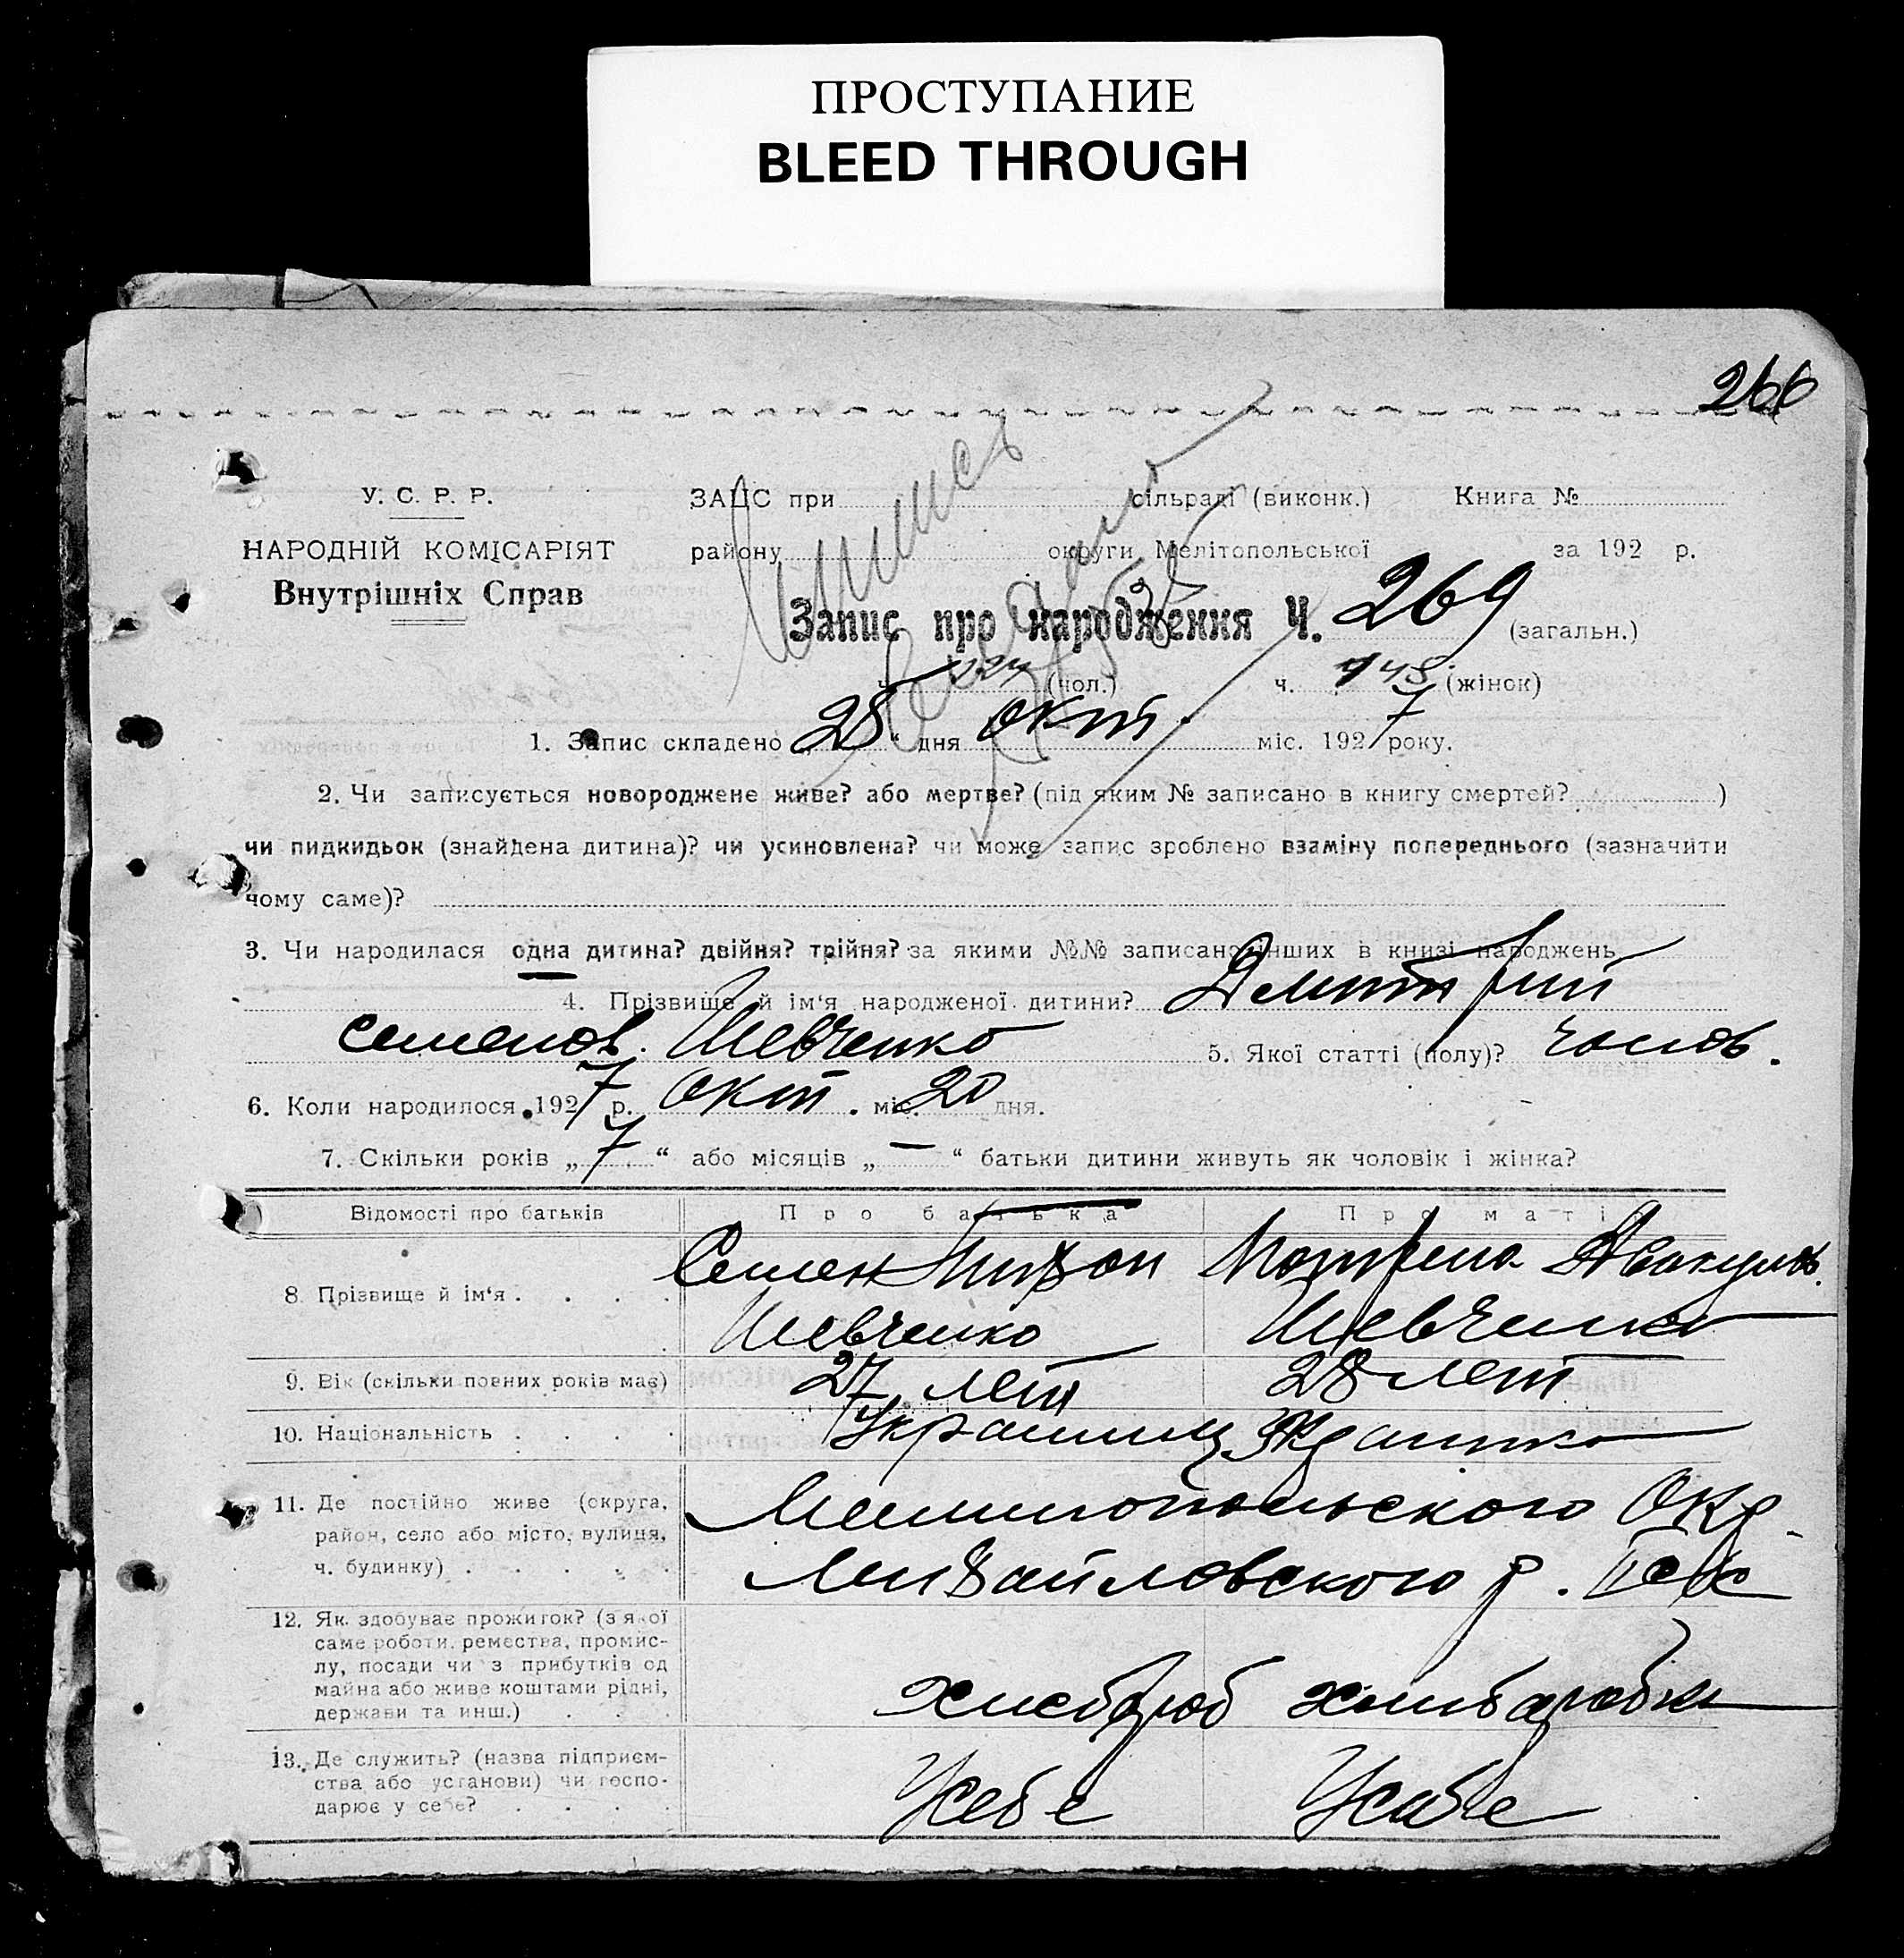 ПРОСТУПАНИЕ
BLEED THROUGH
266
У. С. Р. Р.
НАРОДНІЙ КОМІСАРІЯТ
Внутрішніх Справ
ЗАЦС при сільраді (виконк.) Книга №
району округи Мелітопольської за 192 р.
Запис про народження Ч. 269 (загальн.)
ч. (чол.) ч. (жінок)
1. Запис складено 28 “ дня окт. міс. 1927 року.
2. Чи записується новороджене живе? або мертве? (під яким № записано в книгу смертей? )
чи пидкидьок (знайдена дитина)? чи усиновлена? чи може запис зроблено взаміну попереднього (зазначити
чому саме)?
3. Чи народилася одна дитина? двійня? трійня? за якими №№ записано інших в книзі народжень
4. Прізвище й ім‘я народженої дитини? Дмитрий
Семенов. Шевченко 5. Якої статті (полу)? челов.
6. Коли народилося 1927 р. окт. міс. 20 дня.
7. Скільки років „ 7 “ або місяців „ — “ батьки дитини живуть як чоловік і жінка?
Відомості про батьків Про батька Про матір
8. Прізвище й ім‘я . . . . Семен Тихон Мотрена Авакумов.
Шевченко Шевченко
9. Вік (скільки повних років має) 27 лет 28 лет
10. Національність . . . . Украинец Украинка
11. Де постійно живе (округа, район, село або місто, вулиця, ч. будинку) . . . . .
Мелитопольского Окр.
Михайловского р.
12. Як здобуває прожиток? (з якої саме роботи, ремества, промислу, посади чи з прибутків од майна або живе коштами рідні, держави та инш.) . . .
хлебороб хлебаробка
13. Де служить? (назва підприємства або установи) чи господарює у себе? . . . .
Усебе Усабе